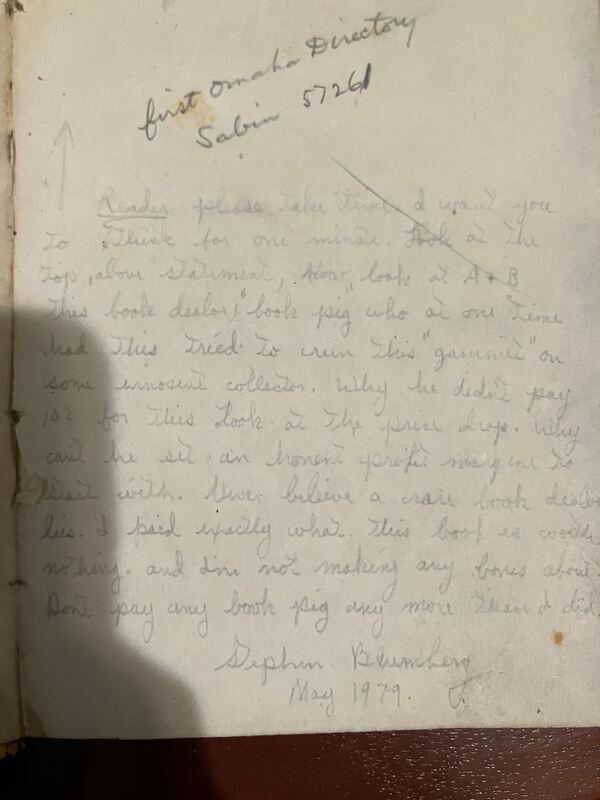 first Omaha Directory
Sabin 57261
Reader please take time. I want you
to think for one minute. Look at the
top, above statement, Now look at A + B
This book dealor, "book pig" who at one time
had this tried to crum this "gammit" on
some innosint collector. Why he didn't pay
10¢ for this Look at the price drop. Why
cant he sit an honent profit margine to
start with. Never believe a rare book dealor
lies. I paid exactly what this book is worth,
nothing. and I'm not making any bones about.
Dont pay any book pig any more than I did.
Stephin Blumberg
May 1979.